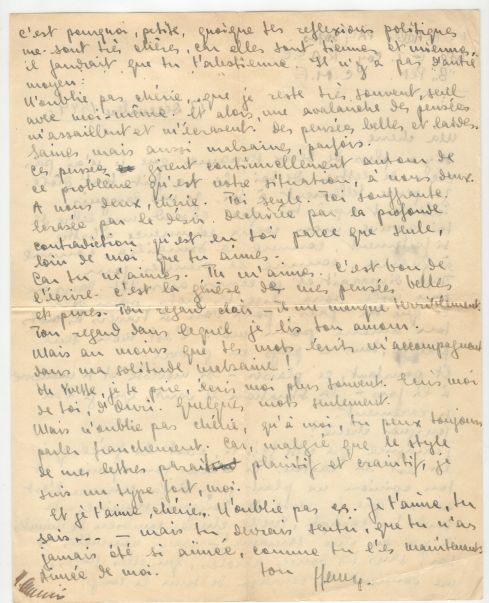 c'est pourquoi, petite, quoique tes reflexions politiques
me sont très chères, car elles sont tiennes et miennes,
il faudrait que tu t'abstienne. Il n'y a pas d'autre
moyen.
N'oublie pas chérie, que je reste très souvent seul
avec moi-même. Et alors, une avalanche des pensées
m'assaillent et m'écrasent. Des pensées belles et laides.
Saines, mais aussi malsaines, parfois.
Ces pensées girent continuellement autour de
ce problème qu'est notre situation, à nous deux.
A nous deux, chérie. Toi seule. Toi souffrante.
Ecrasée par le désir. Dechirée par la profonde
contradiction qu'est en toi parce que seule,
loin de moi, que tu aimes.
Car tu m'aimes. Tu m'aimes. C'est bon de
l'écrire. C'est la de mes pensées belles
et pures. Ton regard clair – il me manque terriblement.
Ton regard dans lequel je lis ton amour.
Mais au moins que tes mots écrits m'accompagnent
dans ma solitude malsaine.
Oh Yvette, je te prie, écris moi plus souvent. Ecris moi
de toi, Quelques mots seulement.
Mais n'oublie pas chérie, qu'à moi, tu peux toujours
parler franchement. Car, malgré que le style
de mes lettres parait plaintif et craintif, je
suis un type fort, moi.
Et je t'aime, chérie. N'oublie pas ça. Je t'aime, tu
sais... – mais tu devrais sentir, que tu n'as
jamais été si aimée, comme tu l'es maintenant
Aimée de moi. ton Henry